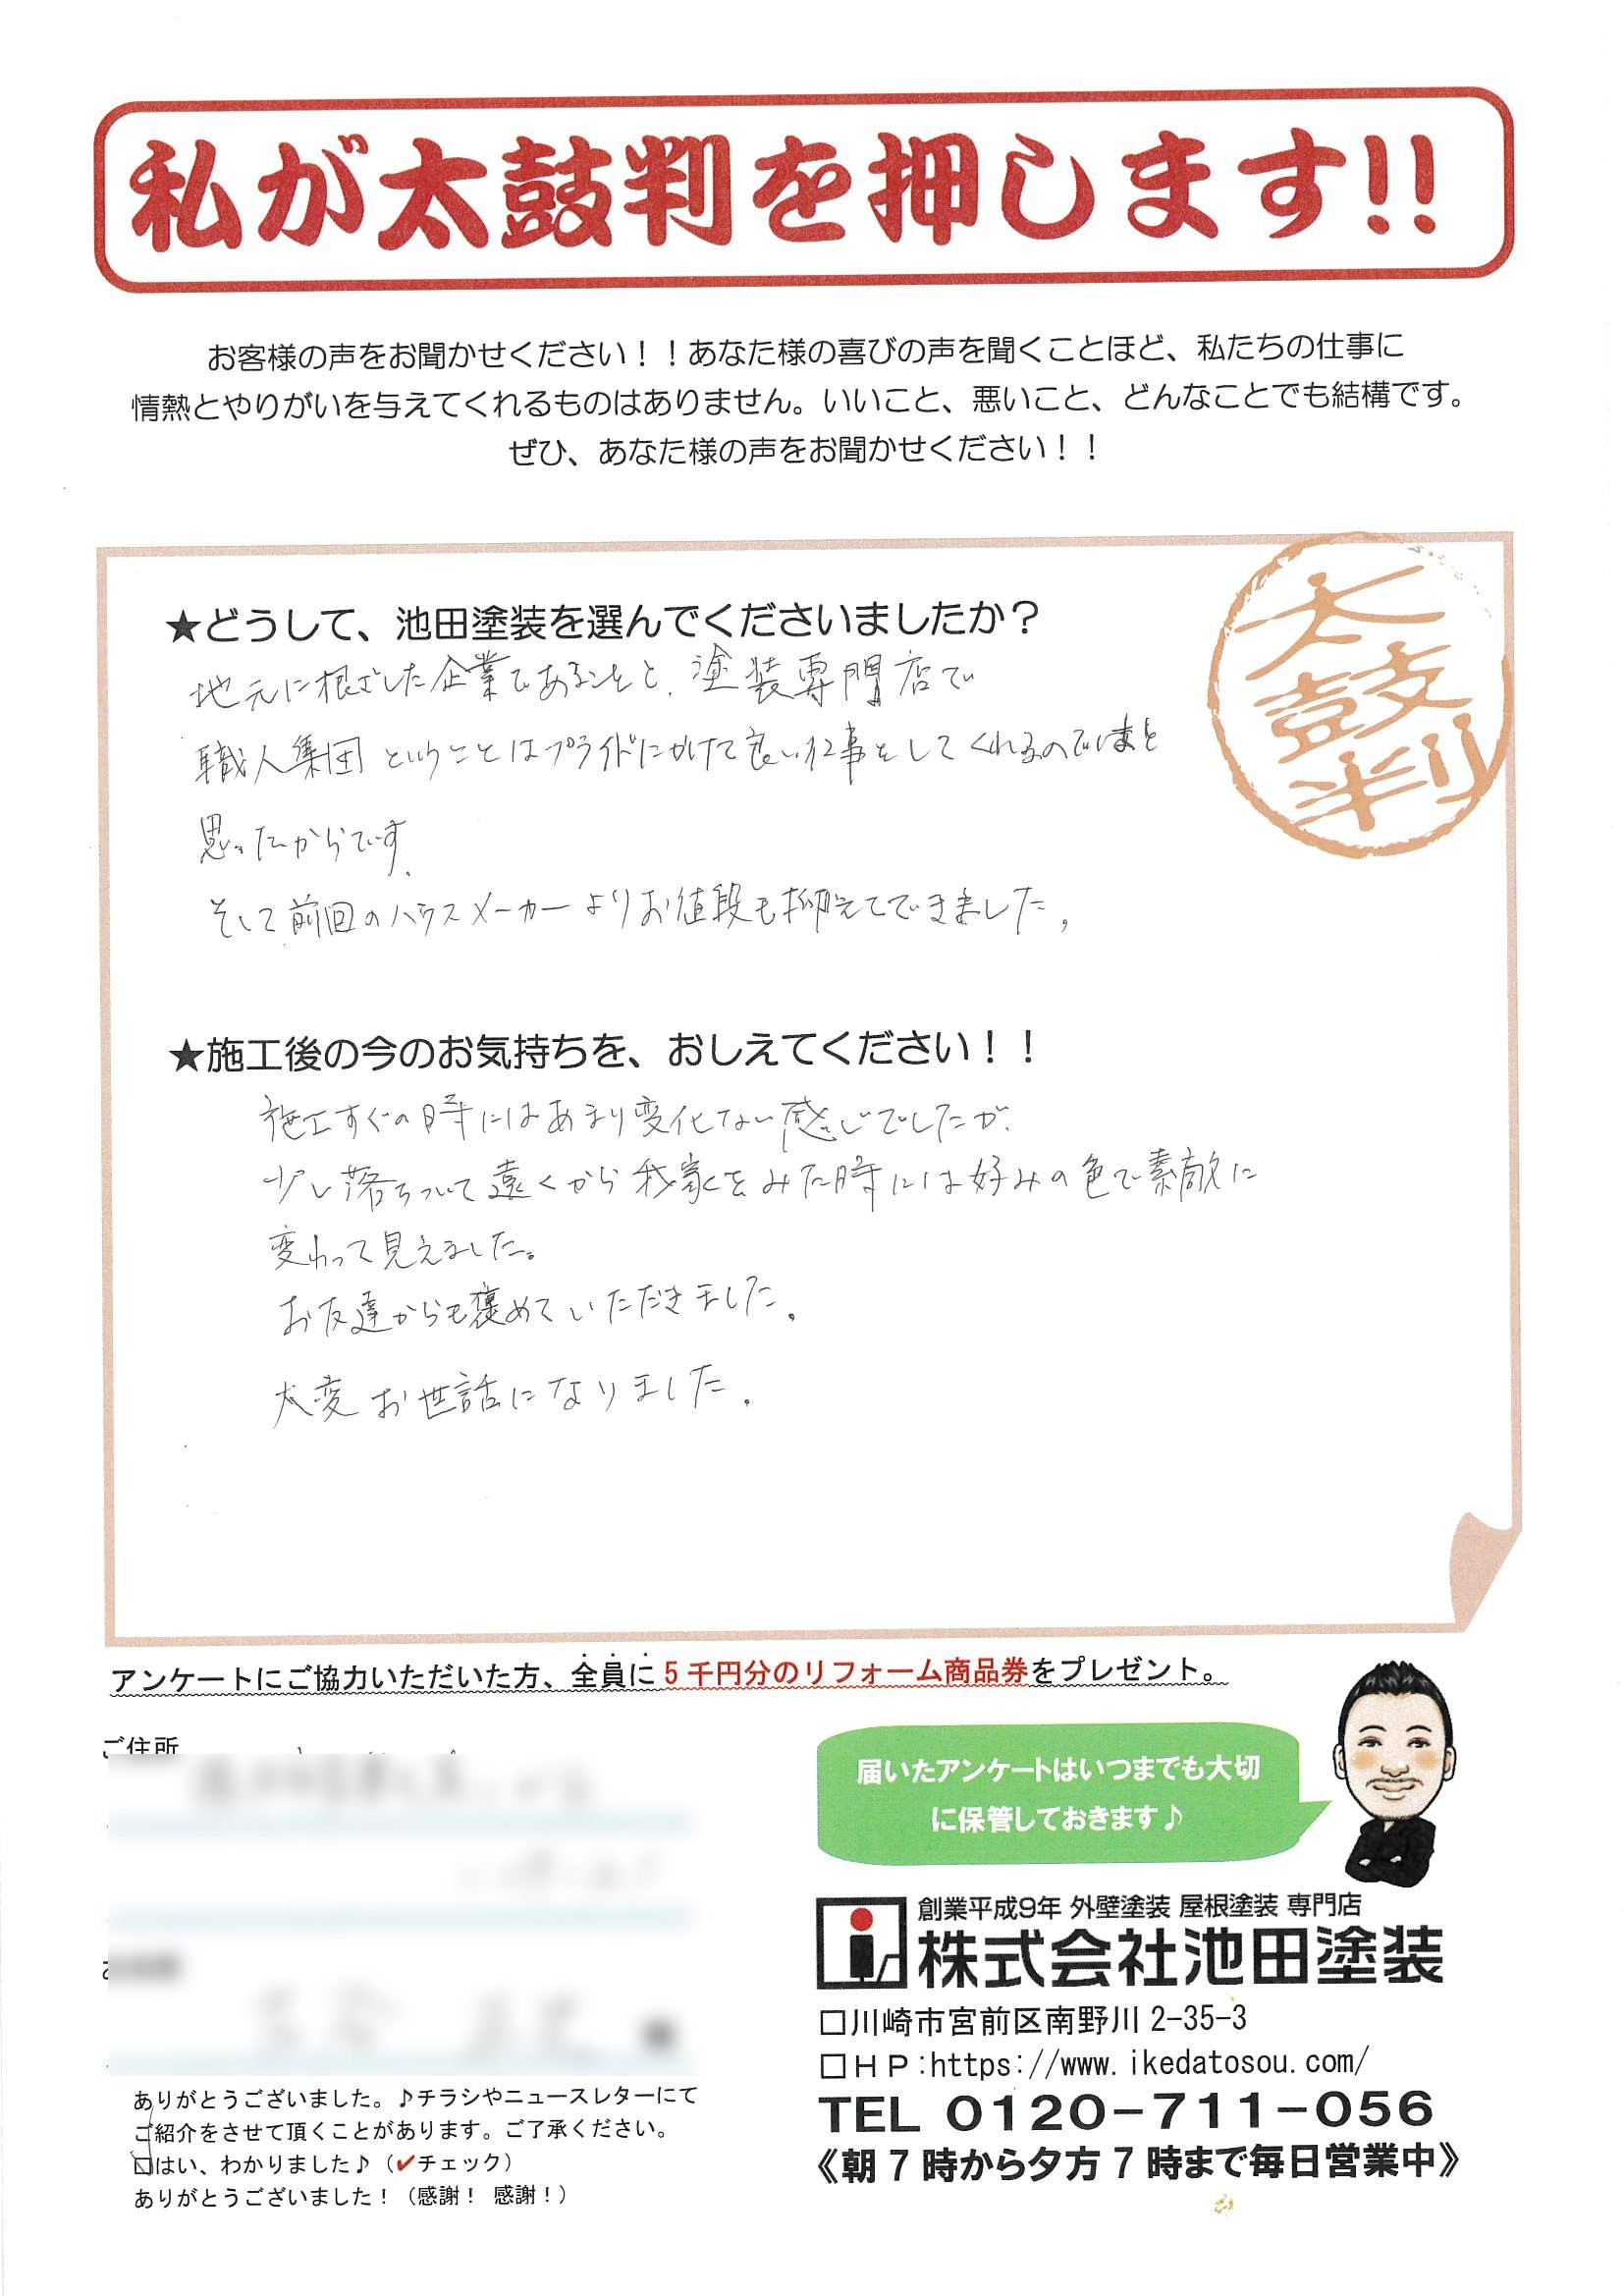 私が太鼓判を押します!!
お客様の声をお聞かせください！！あなた様の喜びの声を聞くことほど、私たちの仕事に
情熱とやりがいを与えてくれるものはありません。いいこと、悪いこと、どんなことでも結構です。
ぜひ、あなた様の声をお聞かせください！！
太鼓判
★どうして、池田塗装を選んでくださいましたか？
地元に根ざした企業であることと、塗装専門店で
職人集団ということはプライドにかけて良い仕事をしてくれるのでは と
思ったからです。
そして前回のハウスメーカーよりお値段も抑えてできました。
★施工後の今のお気持ちを、おしえてください！！
施工すぐの時にはあまり変化ない感じでしたが、
少し落ちついて遠くから我家をみた時には好みの色で素敵に
変わって見えました。
お友達からも褒めていただきました。
大変お世話になりました。
アンケートにご協力いただいた方、全員に5千円分のリフォーム商品券をプレゼント。
ご住所
届いたアンケートはいつまでも大切
に保管しておきます♪
創業平成9年 外壁塗装 屋根塗装 専門店
株式会社池田塗装
□川崎市宮前区南野川2-35-3
□ＨＰ:https://www.ikedatosou.com/
TEL 0120-711-056
《朝7時から夕方7時まで毎日営業中》
ありがとうございました。♪チラシやニュースレターにて
ご紹介をさせて頂くことがあります。ご了承ください。
□はい、わかりました♪（✔チェック）
ありがとうございました！（感謝！ 感謝！）